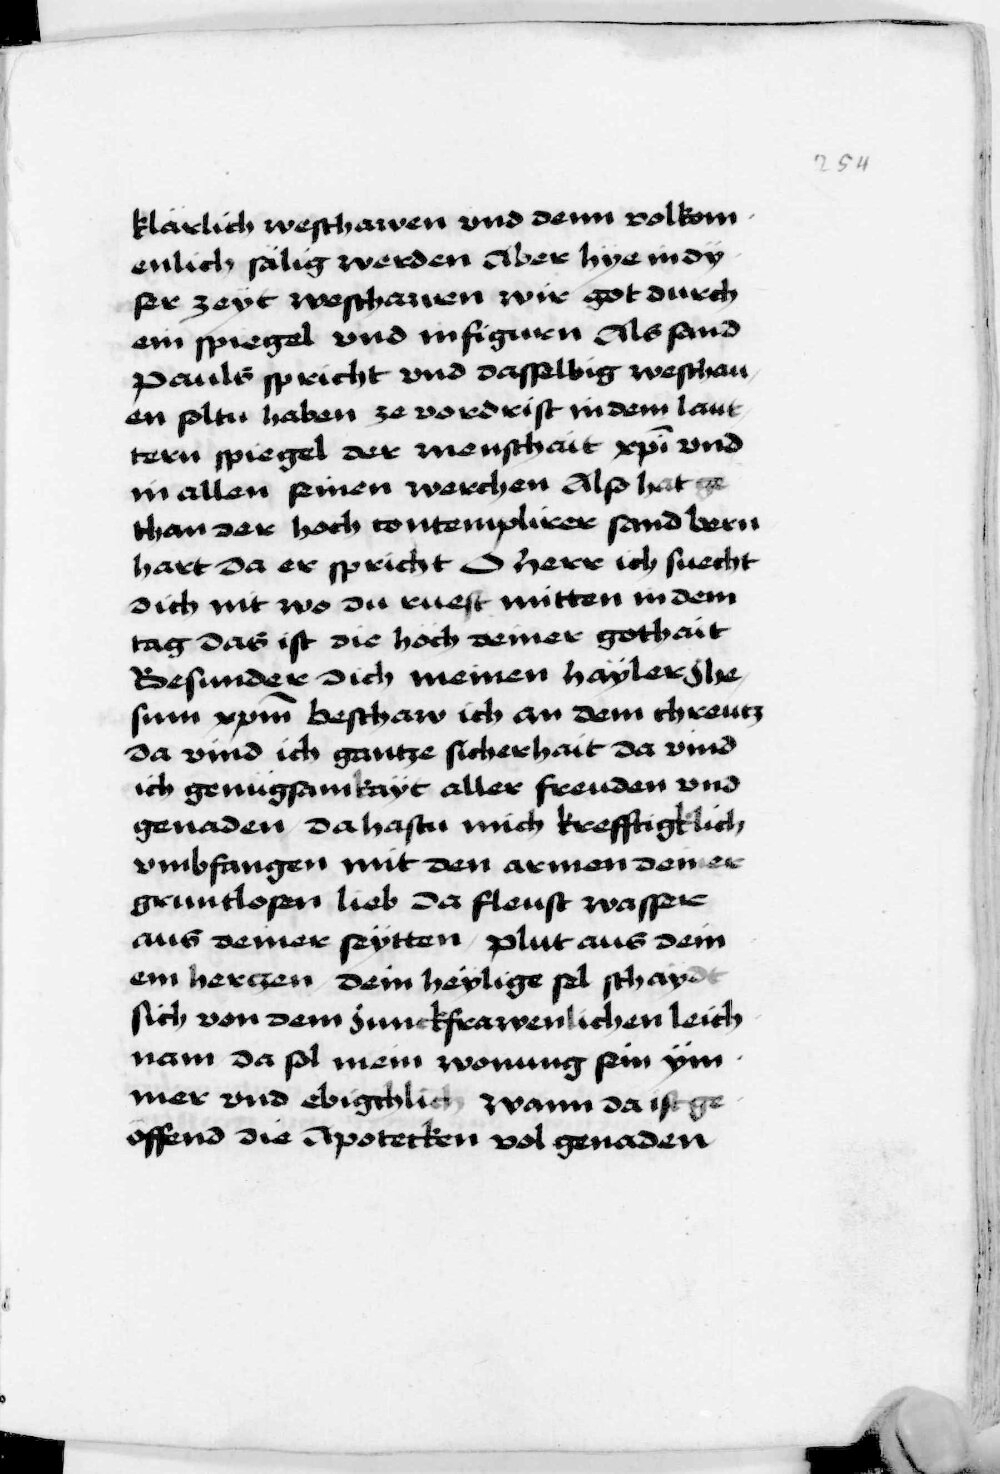 254
klärlich weschawen vnd denn volkom
enlich sälig werden Aber hye in dÿ
ser zeÿt weschawen wir got durch
ein spiegel vnd in figurn Als sand
Pauls spricht vnd dasselbig weschau
en soltu haben ze vordrist in dem laut
tern spiegel der menschait xpi vnd
in allen seinen werchen Also hat ge
than der hoch contemplirer sand bern
hart da er spricht O herr ich suecht
dich nit wo du ruest mitten in dem
tag das ist die höch deiner gothait
Besunder dich meinen haÿler Jhe
sum xpm beschaw ich an dem chreutz
da vind ich gantze sicherhait da vind
ich genügsamkaÿt aller freuden vnd
genaden / da hastu mich krefftigklich
vmbfangen mit den armen deiner
gruntlosen lieb da fleust wasser
aus deiner seÿtten / plut aus dein
em herczen / dein heÿlige sel schaÿdt
sich von dem Junckfrawenlichen leich
nam da sol mein wonung sein ÿm
mer vnd ebigchlich wann da ist ge
öffend die Apotecken vol genaden